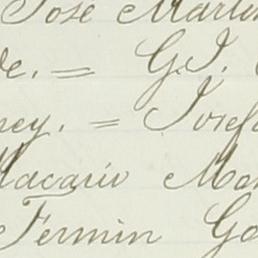 José Martin
de. = G.J.
ney. = Josefa
Macario Ma
Fermin Go